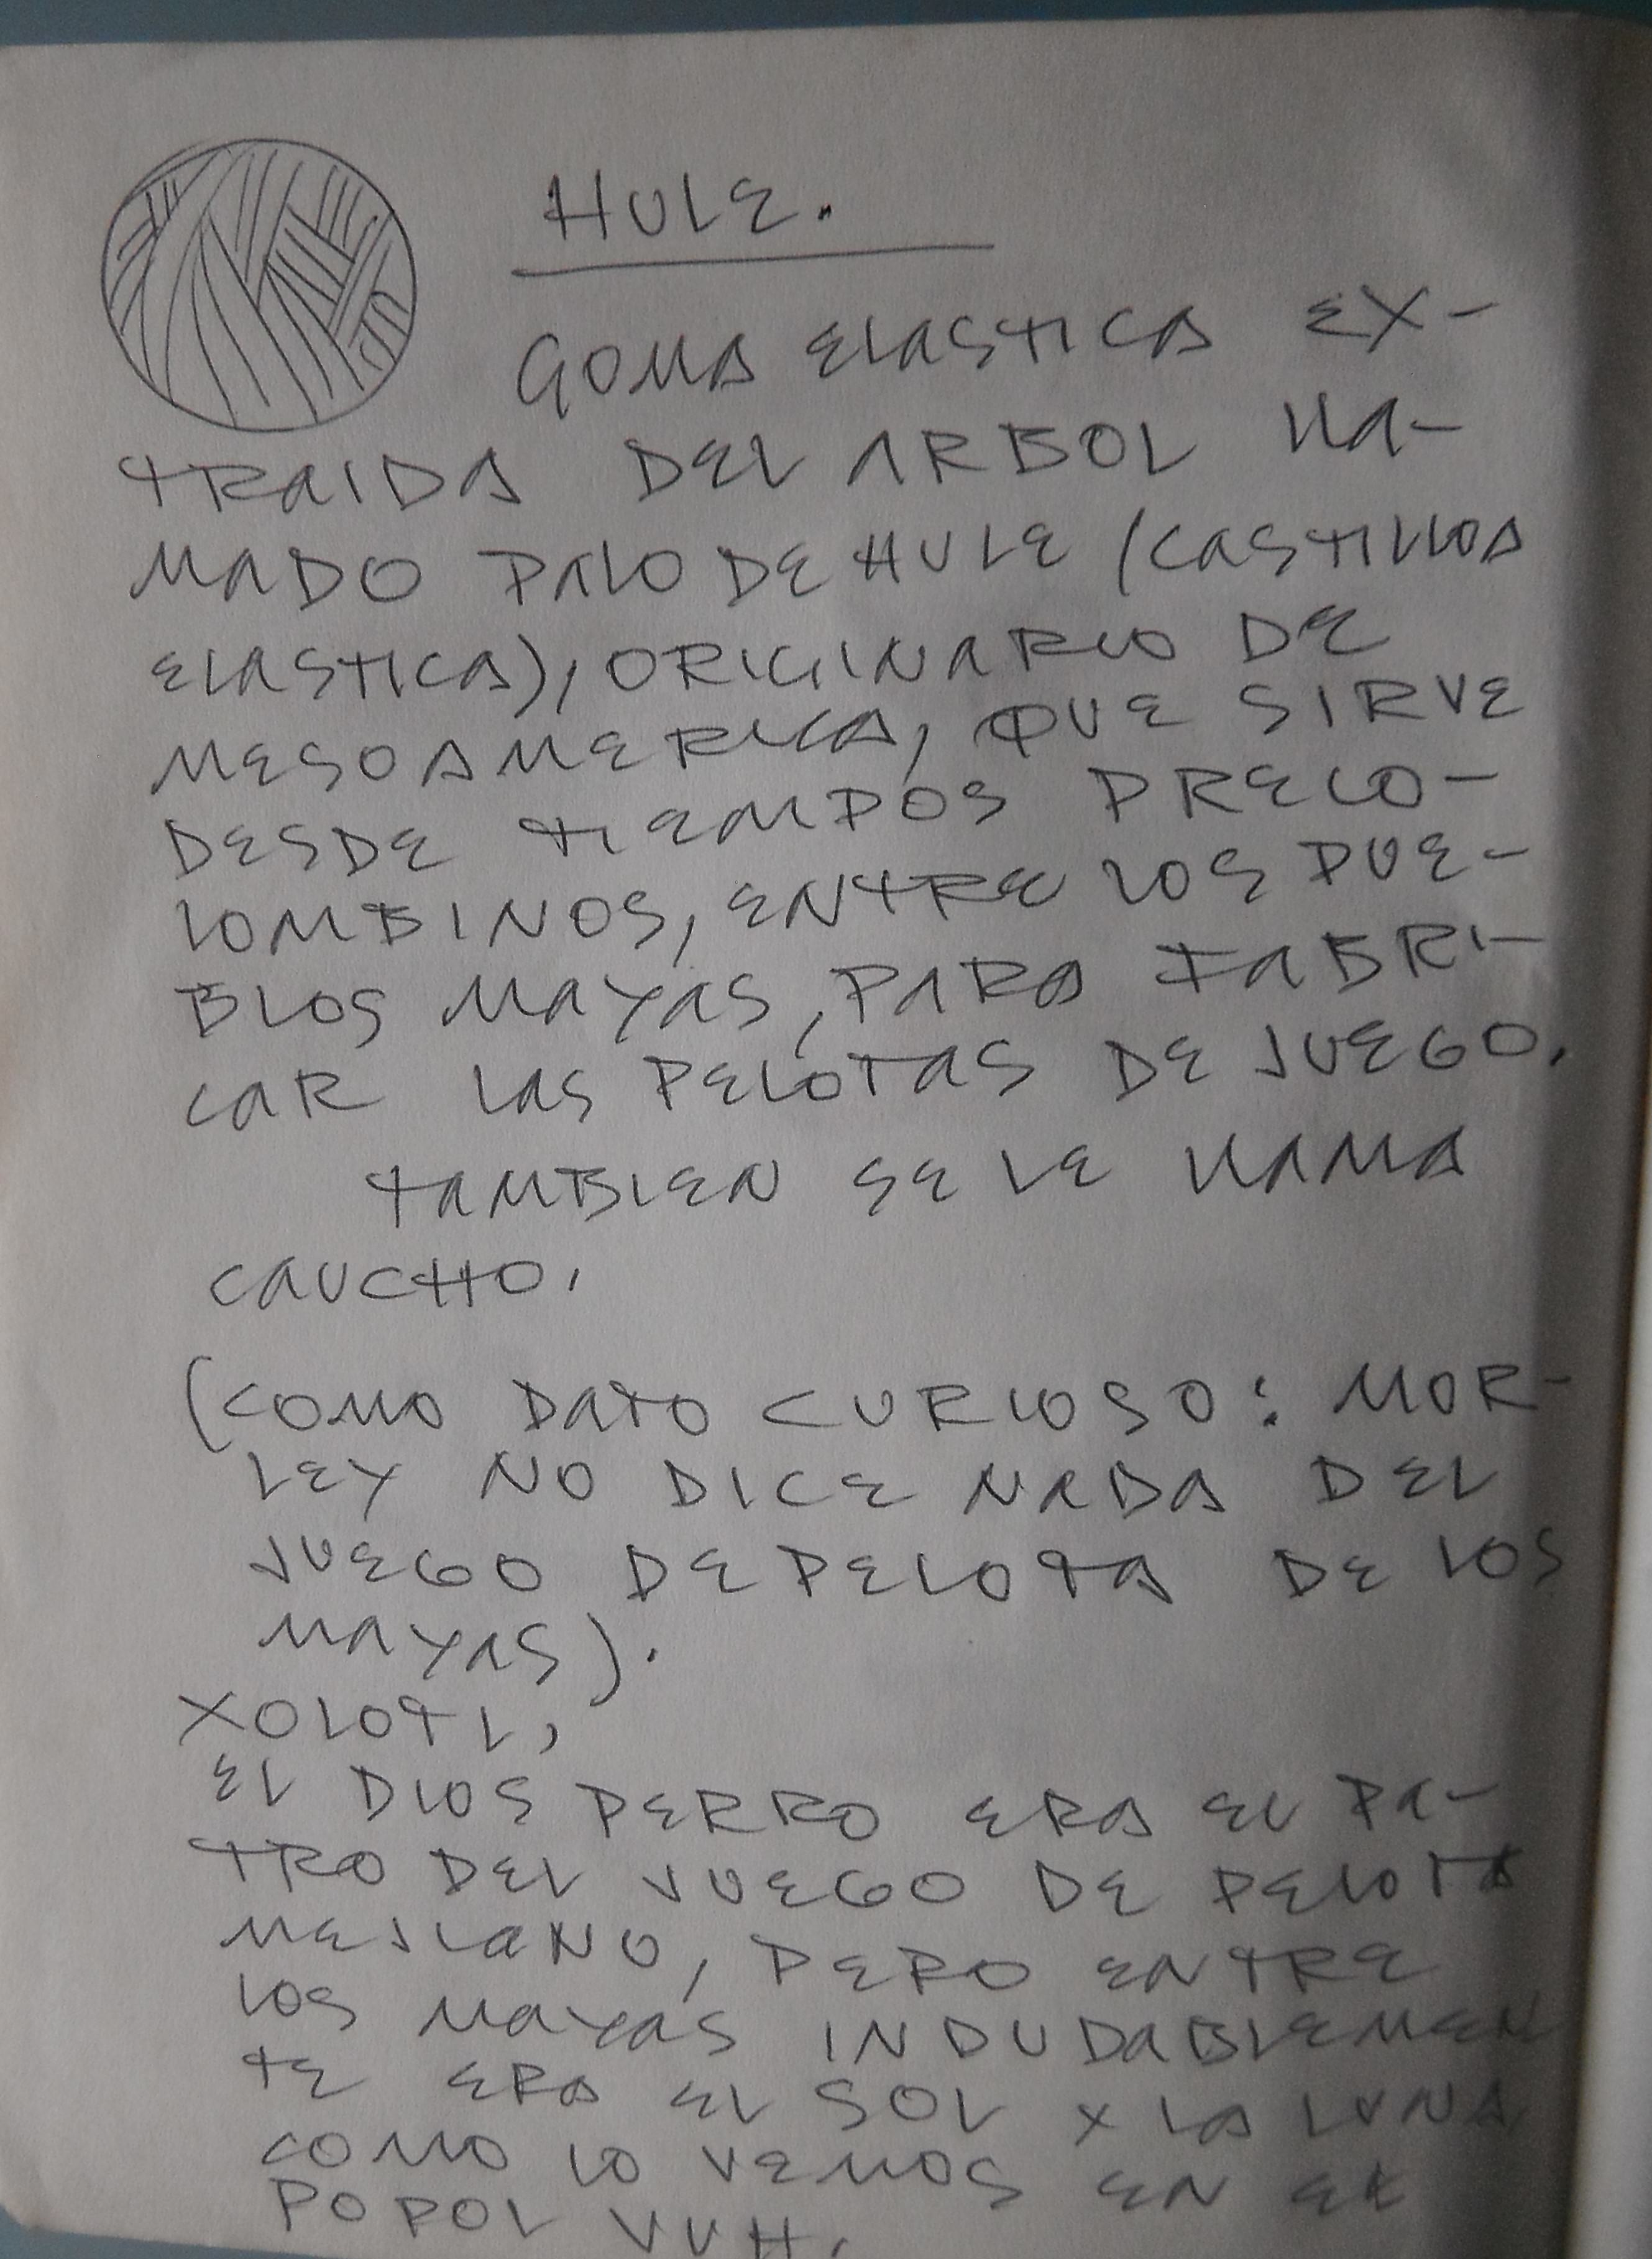 HULE.
GOMA ELASTICA EX-
TRAIDA DEL ARBOL LLA-
MADO PALO DE HULE (CASTILLOA
ELASTICA), ORIGINARIO DE
MESOAMERICA, QUE SIRVE
DESDE TIEMPOS PRECO-
LOMBINOS, ENTRE LOS PUE-
BLOS MAYAS, PARA FABRI-
CAR LAS PELOTAS DE JUEGO.
TAMBIEN SE LE LLAMA
CAUCHO.
(COMO DATO CURIOSO: MOR-
LEY NO DICE NADA DEL
JUEGO DE PELOTA DE LOS
MAYAS).
XOLOTL,
EL DIOS PERRO ERA EL PA-
TRO DEL JUEGO DE PELOTA
MEJICANO, PERO ENTRE
LOS MAYAS INDUDABLEMEN
TE ERA EL SOL Y LA LUNA
COMO LO VEMOS EN EL
POPOL VUH.